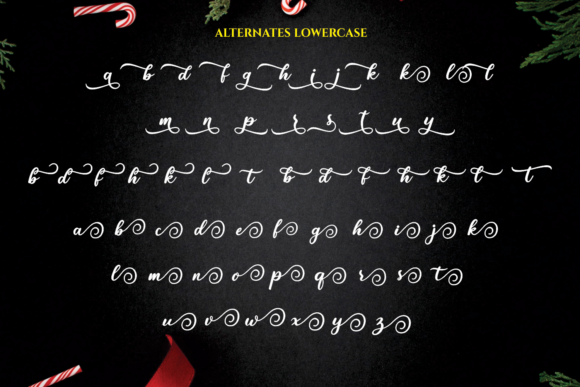 ALTERNATES LOWERCASE
a b d f g h i j k k l l
m n p r s t u y
b d f h k l t b d f h k l t t
a b c d e f g h i j k
l m n o p q r s t
u v w x y z